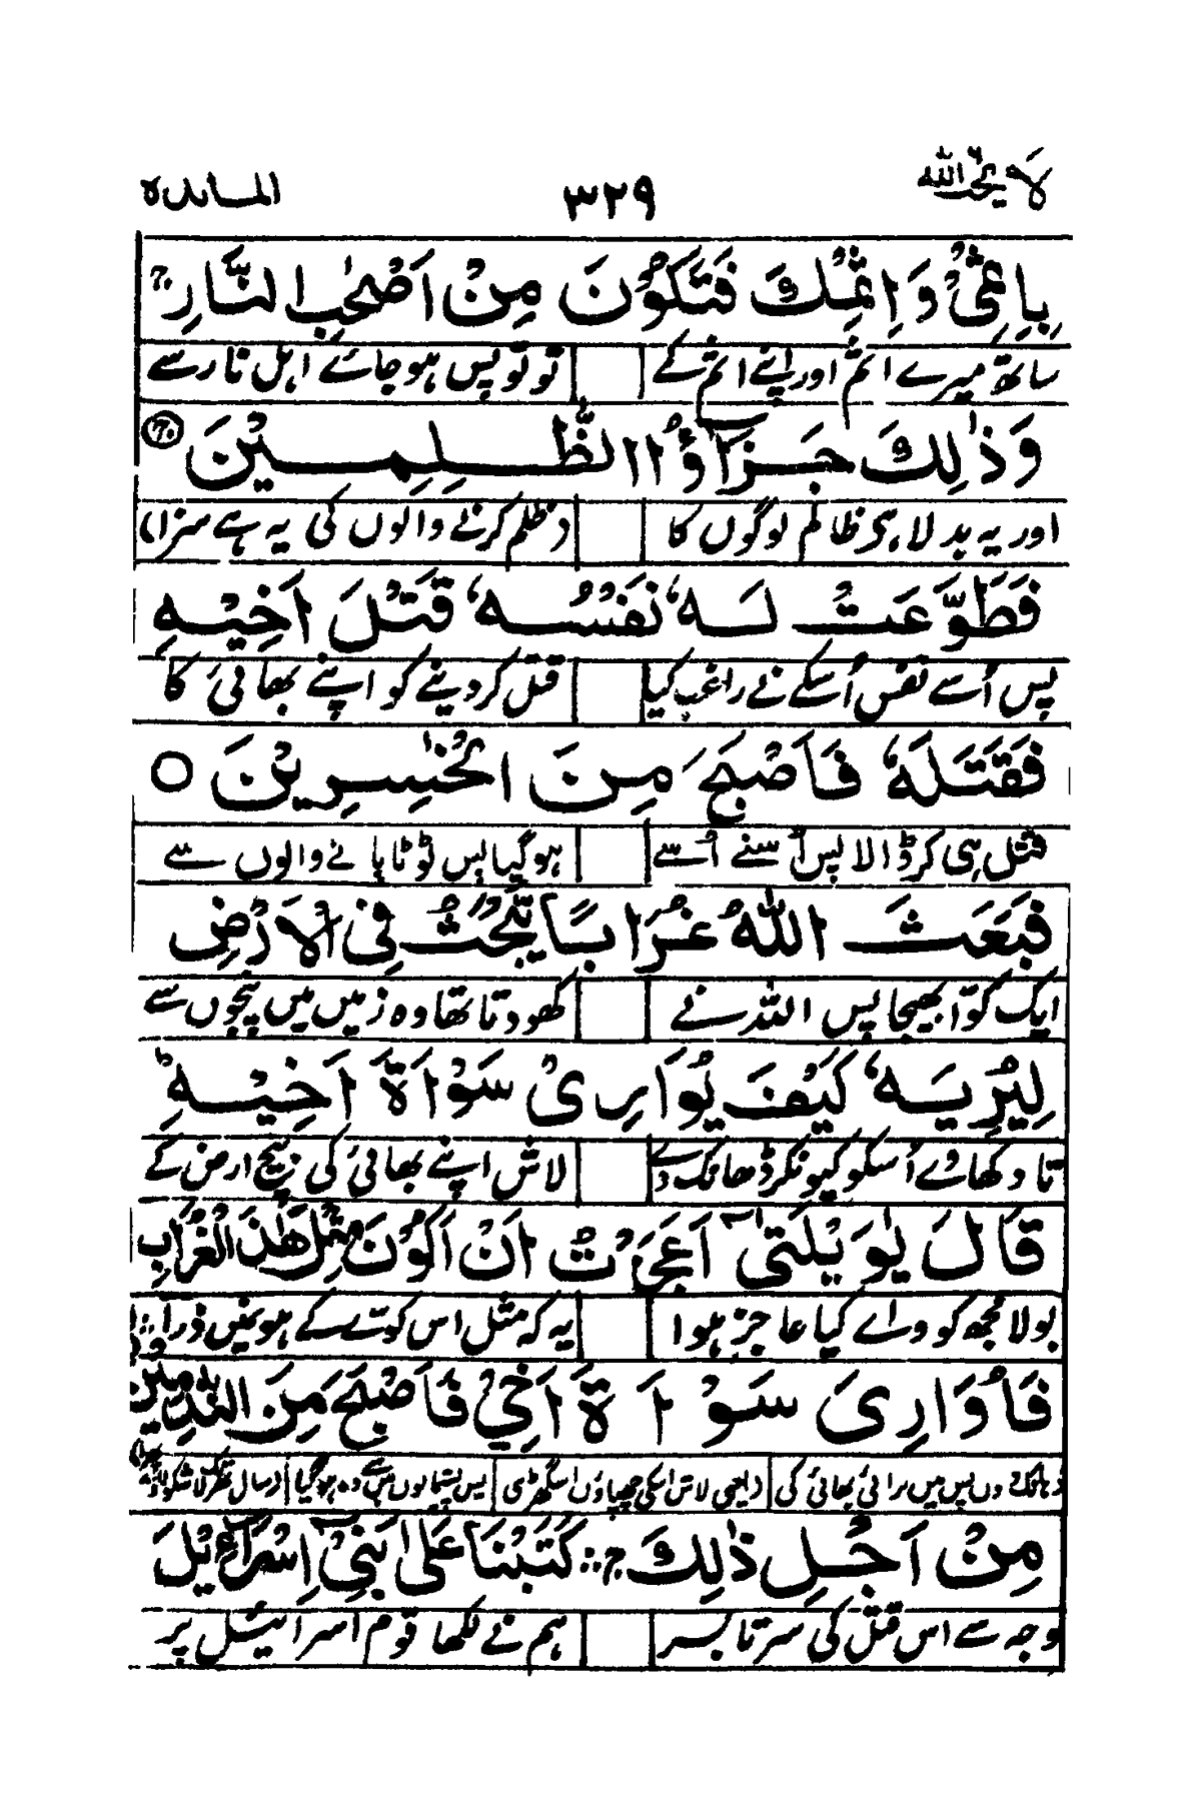 لَا یحب اللہ ۳۲۹ المائدہ
بِاِثْمِیْ وَ اِثْمِكَ فَتَكُوْنَ مِنْ اَصْحٰبِ النَّارِ ج
ساتھ میرے اثم اور اپنے اثم کے تو تو پس ہو جائے اہل نار سے
وَ ذٰلِكَ جَزٰٓؤُا الظّٰلِمِیْنَ
اور یہ بدلا ہی ظالم لوگوں کا (ظلم کرنے والوں کی یہ ہے سزا)
فَطَوَّعَتْ لَهٗ نَفْسُهٗ قَتْلَ اَخِیْهِ
پس اُسے نفس اُسکے نے راغب کیا قتل کر دینے کو اپنے بھائی کا
فَقَتَلَهٗ فَاَصْبَحَ مِنَ الْخٰسِرِیْنَ ○
قتل ہی کر ڈالا پس اُسنے اُسے ہو گیا پس ٹوٹا پانے والوں سے
فَبَعَثَ اللّٰهُ غُرَابًا یَّبْحَثُ فِی الْاَرْضِ
ایک کوّا بھیجا پس اللہ نے کھودتا تھا وہ زمیں میں پنجوں سے
لِیُرِیَهٗ كَیْفَ یُوَارِیْ سَوْاَةَ اَخِیْهِ ط
تا دکھاوے اُسکو کیونکر ڈھانک دے لاش اپنے بھائی کی بیچ ارض کے
قَالَ یٰوَیْلَتٰۤی اَعَجَزْتُ اَنْ اَكُوْنَ مِثْلَ هٰذَا الْغُرَابِ
بولا مجھ کو واے کیا عاجز ہوا یہ کہ مثل اس کوّے کے ہوئیں ذرا
فَاُوَارِیَ سَوْاَةَ اَخِیْ فَاَصْبَحَ مِنَ النّٰدِمِیْنَ
ڈھانک دوں پس میں برائی بھائی کی (یعنی لاش اسکی چھپاؤں اس گھڑی پس پشیمانوں میں سے وہ ہو گیا
مِنْ اَجْلِ ذٰلِكَ ج كَتَبْنَا عَلٰی بَنِیْۤ اِسْرَآءِیْلَ
وجہ سے اس قتل کی سرتابسر ہم نے لکھا قوم اسرائیل پر